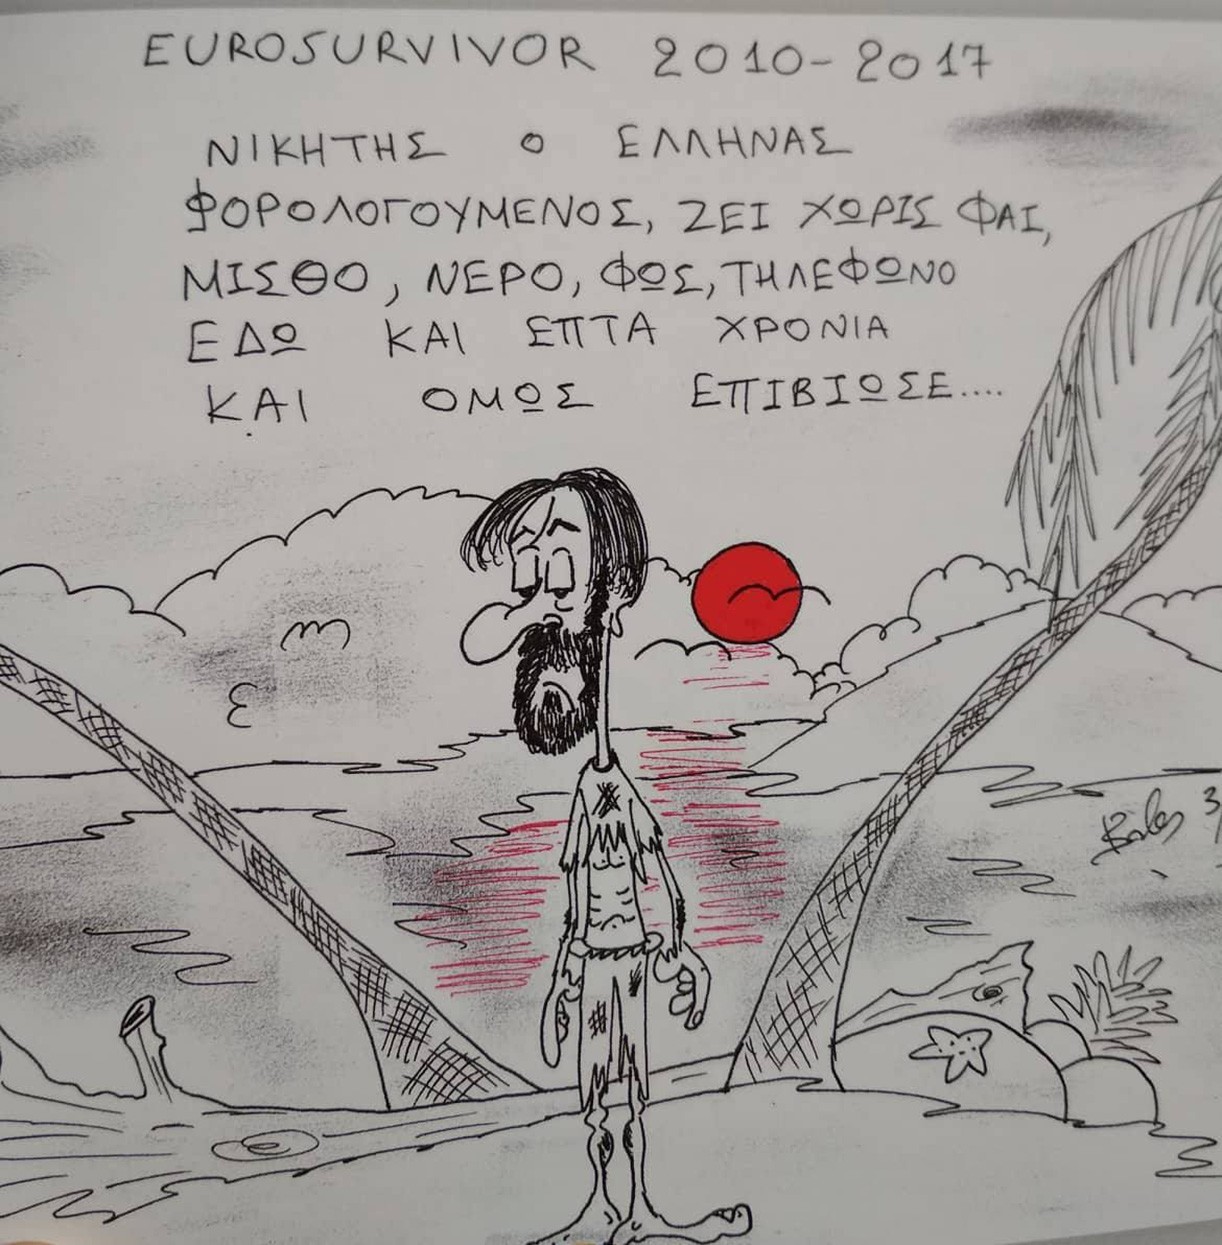 EUROSURVIVOR 2010-2017
ΝΙΚΗΤΗΣ Ο ΕΛΛΗΝΑΣ
ΦΟΡΟΛΟΓΟΥΜΕΝΟΣ, ΖΕΙ ΧΩΡΙΣ ΦΑΙ,
ΜΙΣΘΟ, ΝΕΡΟ, ΦΩΣ, ΤΗΛΕΦΩΝΟ
ΕΔΩ ΚΑΙ ΕΠΤΑ ΧΡΟΝΙΑ
ΚΑΙ ΟΜΩΣ ΕΠΙΒΙΩΣΕ....